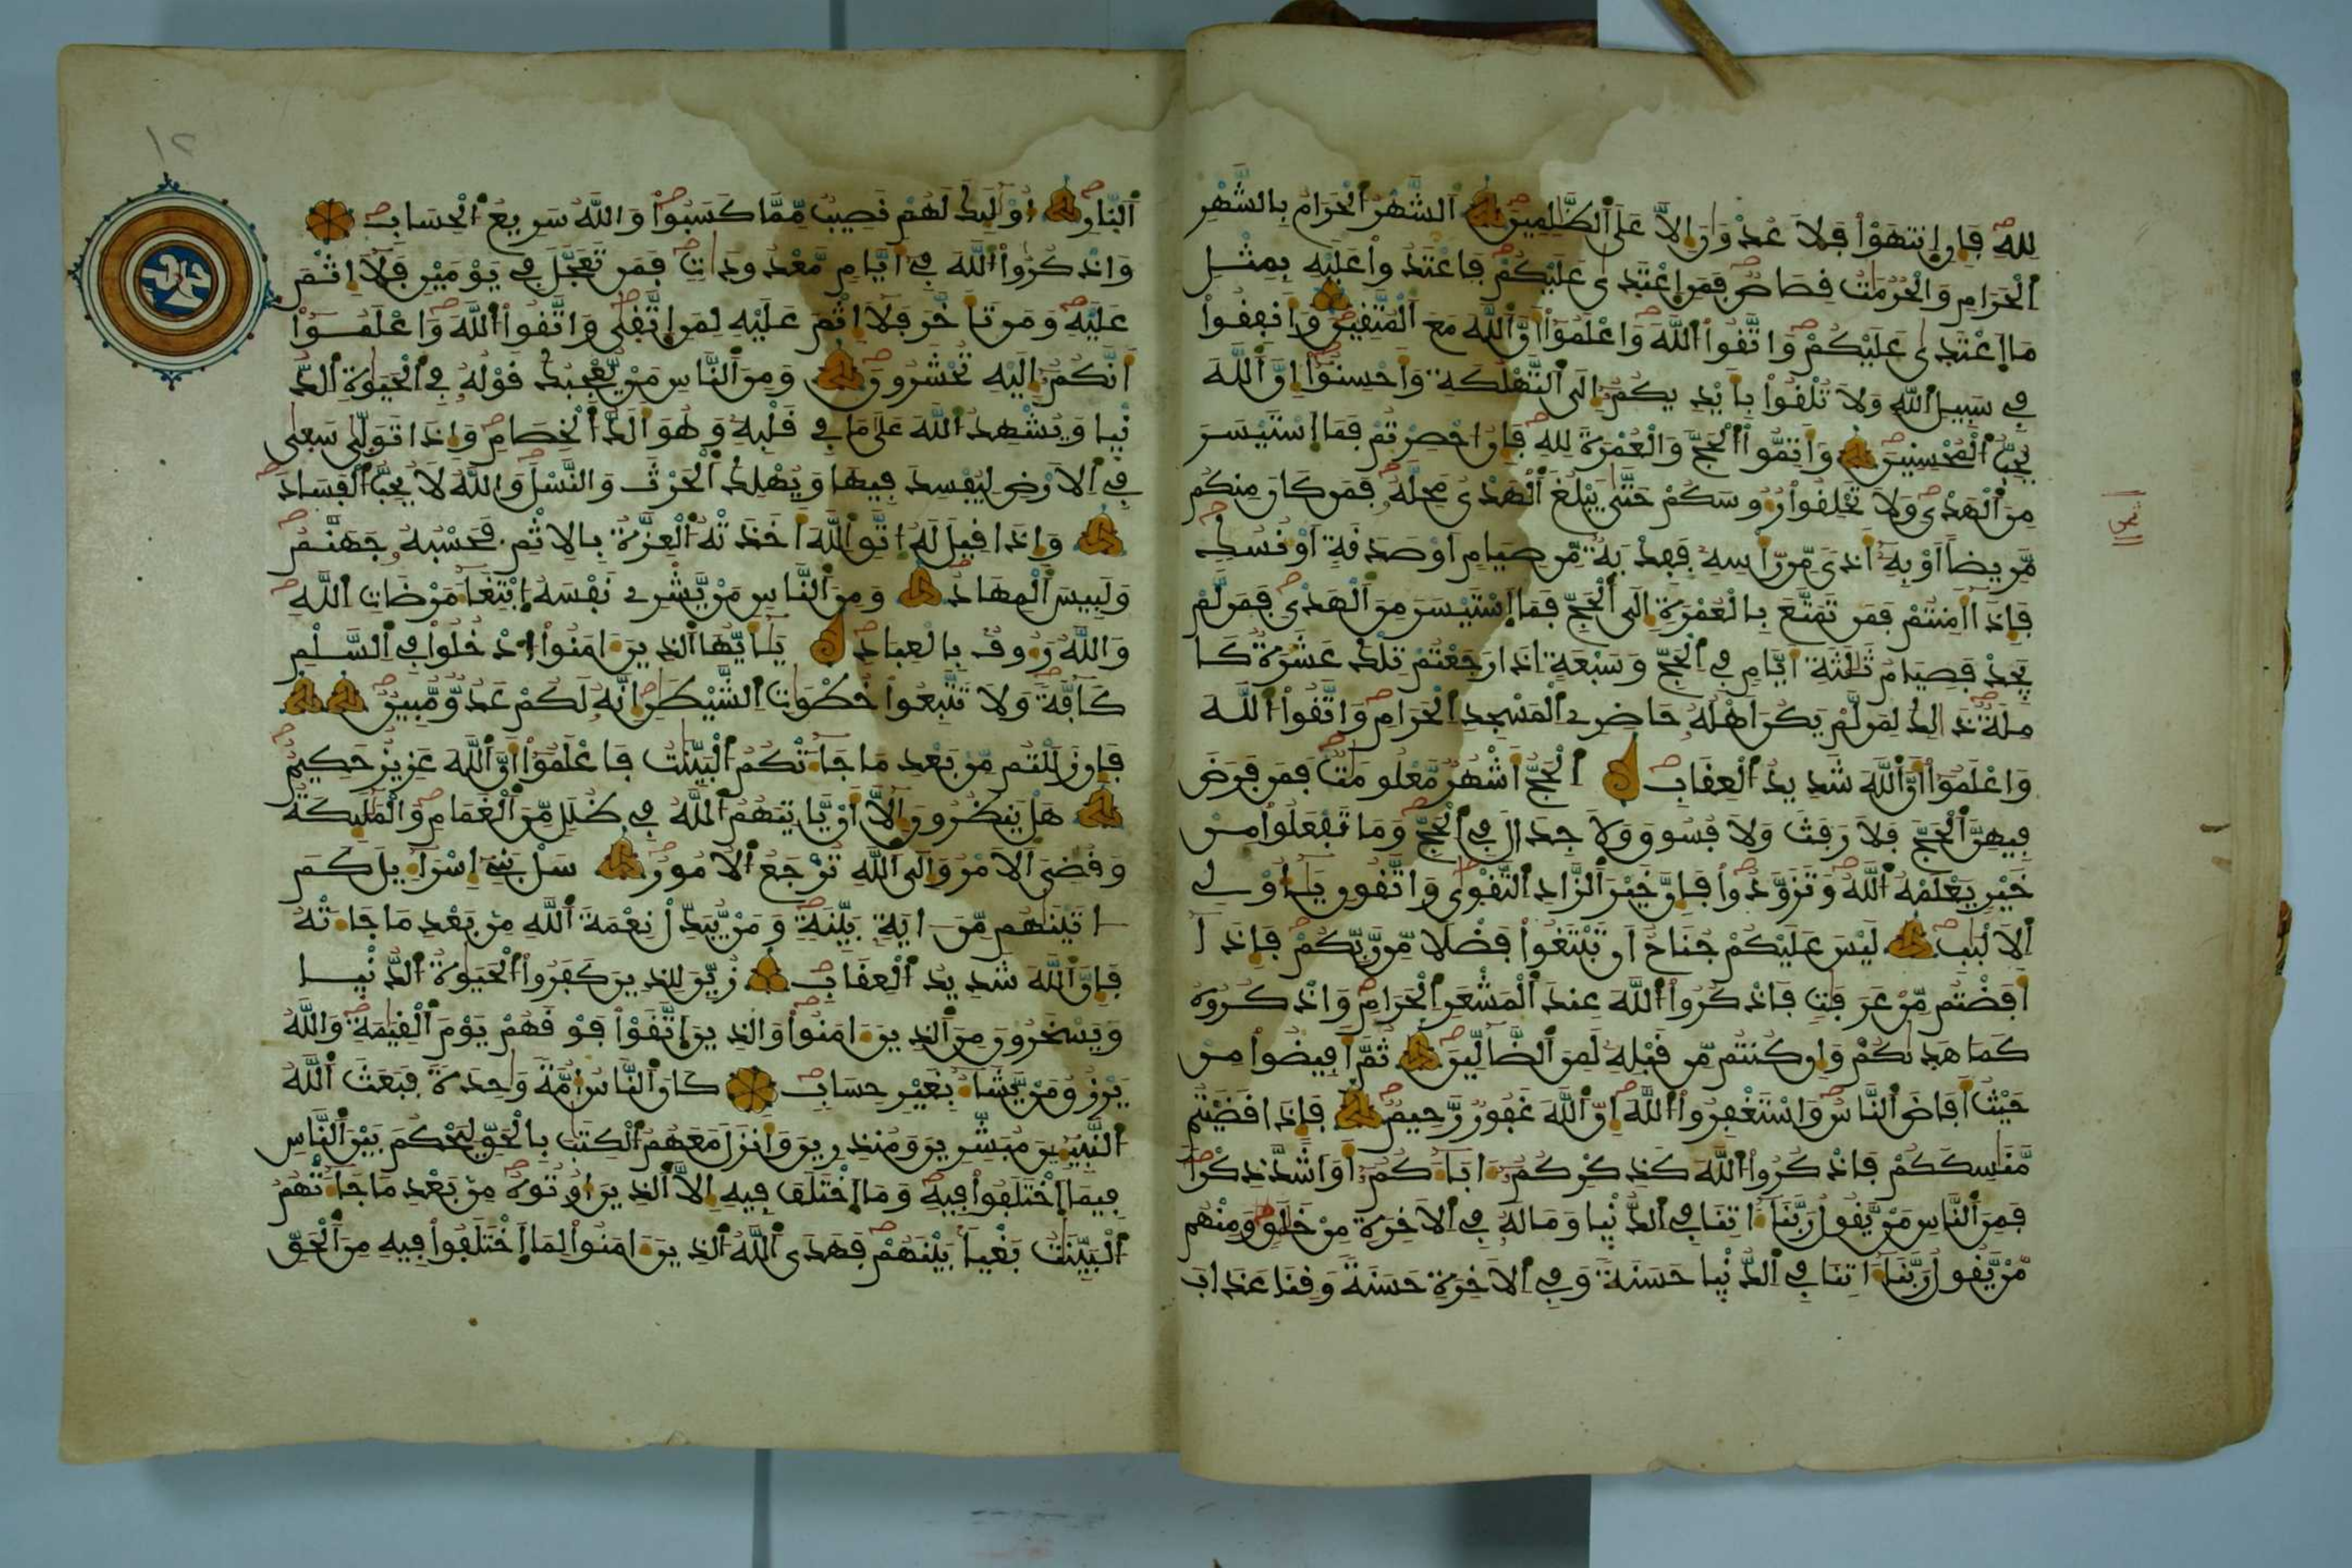 لِلهِ فَإِنِ اِنتَهَوْاْ فَلَا عُدْوَٰنَ إِلَّا عَلَى اَلظَّٰلِمِينَ اَلشَّهْرُ اُلْحَرَامُ بِالشَّهْرِ
اِلْحَرَامِ وَالْحُرُمَٰتُ قِصَاصٌ فَمَنِ اِعْتَدَىٰ عَلَيْكُمْ فَاعْتَدُواْ عَلَيْهِ بِمِثْلِ
مَا اَعْتَدَىٰ عَلَيْكُمْ وَاتَّقُواْ اُللَّهَ وَاعْلَمُواْ أَنَّ اَللَّهَ مَعَ اَلْمُتَّقِينَ وَأَنفِقُواْ
فِي سَبِيلِ اِللَّهِ وَلَا تُلْقُواْ بِأَيْدِيكُمُ إِلَى اَلتَّهْلُكَةِ وَأَحْسِنُواْ إِنَّ اَللَّهَ
يُحِبُّ اُلْمُحْسِنِينَ وَأَتِمُّواْ اُلْحَجَّ وَالْعُمْرَةَ لِلهِ فَإِنُ احْصِرْتُمْ فَمَا اَسْتَيْسَرَ
مِنَ اَلْهَدْيِ وَلَا تَحْلِقُواْ رُءُوسَكُمْ حَتَّىٰ يَبْلُغَ اَلْهَدْيُ مَحِلَّهُ فَمَن كَانَ مِنكُم
مَّرِيضاً اَوْ بِهِ أَذىً مِّن رَّأْسِهِ فَفِدْيَةٌ مِّن صِيَامٍ اَوْ صَدَقَةٍ اَوْ نُسُكٍ
فَإِذَا أَمِنتُمْ فَمَن تَمَتَّعَ بِالْعُمْرَةِ إِلَى اَلْحَجِّ فَمَا اَسْتَيْسَرَ مِنَ اَلْهَدْيِ فَمَن لَّمْ
يَجِدْ فَصِيَامُ ثَلَٰثَةِ أَيَّامٍ فِي اِلْحَجِّ وَسَبْعَةٍ اِذَا رَجَعْتُمْ تِلْكَ عَشَرَةٌ كَا
مِلَةٌ ذَٰلِكَ لِمَن لَّمْ يَكُنَ اَهْلُهُ حَاضِرِي اِلْمَسْجِدِ اِلْحَرَامِ وَاتَّقُواْ اُللَّهَ
وَاعْلَمُواْ أَنَّ اَللَّهَ شَدِيدُ اُلْعِقَابِ اِلْحَجُّ أَشْهُرٌ مَّعْلُومَٰتٌ فَمَن فَرَضَ
فِيهِنَّ اَلْحَجَّ فَلَا رَفَثَ وَلَا فُسُوقَ وَلَا جِدَالَ فِي اِلْحَجِّ وَمَا تَفْعَلُواْ مِنْ
خَيْرٍ يَعْلَمْهُ اُللَّهُ وَتَزَوَّدُواْ فَإِنَّ خَيْرَ اَلزَّادِ اِلتَّقْوَىٰ وَاتَّقُونِ يَٰأُوْلِي
اِلَالْبَٰبِ لَيْسَ عَلَيْكُمْ جُنَاحٌ اَن تَبْتَغُواْ فَضْلًا مِّن رَّبِّكُمْ فَإِذَا
أَفَضْتُم مِّنْ عَرَفَٰتٍ فَاذْكُرُواْ اُللَّهَ عِندَ اَلْمَشْعَرِ اِلْحَرَامِ وَاذْكُرُوهُ
كَمَا هَدَىٰكُمْ وَإِن كُنتُم مِّن قَبْلِهِ لَمِنَ اَلضَّالِّينَ ثُمَّ أَفِيضُواْ مِنْ
حَيْثُ أَفَاضَ اَلنَّاسُ وَاسْتَغْفِرُواْ اُللَّهَ إِنَّ اَللَّهَ غَفُورٌ رَّحِيمٌ فَإِذَا قَضَيْتُم
مَّنَٰسِكَكُمْ فَاذْكُرُواْ اُللَّهَ كَذِكْرِكُمُ ءَابَاءَكُمُ أَوَ اَشَدَّ ذِكْراً
فَمِنَ اَلنَّاسِ مَنْ يَّقُولُ رَبَّنَا ءَاتِنَا فِي اِلدُّنْيَا وَمَا لَهُ فِي اِلَاخِرَةِ مِنْ خَلَٰقٍ وَمِنْهُم
مَّنْ يَّقُولُ رَبَّنَا ءَاتِنَا فِي اِلدُّنْيَا حَسَنَةً وَفِي اِلَاخِرَةِ حَسَنَةً وَقِنَا عَذَابَ
١٢
اَلنَّارِ أُوْلَٰئِكَ لَهُمْ نَصِيبٌ مِّمَّا كَسَبُواْ وَاللَّهُ سَرِيعُ اُلْحِسَابِ
وَاذْكُرُواْ اُللَّهَ فِي أَيَّامٍ مَّعْدُودَاتٍ فَمَن تَعَجَّلَ فِي يَوْمَيْنِ فَلَا إِثْمَ
عَلَيْهِ وَمَن تَأَخَّرَ فَلَا إِثْمَ عَلَيْهِ لِمَنِ اِتَّقَىٰ وَاتَّقُواْ اُللَّهَ وَاعْلَمُواْ
أَنَّكُمُ إِلَيْهِ تُحْشَرُونَ وَمِنَ اَلنَّاسِ مَنْ يُّعْجِبُكَ قَوْلُهُ فِي اِلْحَيَوٰةِ اِلدُّ
نْيَا وَيُشْهِدُ اُللَّهَ عَلَىٰ مَا فِي قَلْبِهِ وَهُوَ أَلَدُّ اُلْخِصَامِ وَإِذَا تَوَلَّىٰ سَعَىٰ
فِي اِلَارْضِ لِيُفْسِدَ فِيهَا وَيُهْلِكَ اَلْحَرْثَ وَالنَّسْلَ وَاللَّهُ لَا يُحِبُّ اُلْفَسَادَ
وَإِذَا قِيلَ لَهُ اُتَّقِ اِللَّهَ أَخَذَتْهُ اُلْعِزَّةُ بِالِاثْمِ فَحَسْبُهُ جَهَنَّمُ
وَلَبِيسَ اَلْمِهَادُ وَمِنَ اَلنَّاسِ مَنْ يَّشْرِي نَفْسَهُ اُبْتِغَاءَ مَرْضَاتِ اِللَّهِ
وَاللَّهُ رَءُوفٌ بِالْعِبَادِ يَٰأَيُّهَا اَلذِينَ ءَامَنُواْ اُدْخُلُواْ فِي اِلسَّلْمِ
كَافَّةً وَلَا تَتَّبِعُواْ خُطُوَٰتِ اِلشَّيْطَٰنِ إِنَّهُ لَكُمْ عَدُوٌّ مُّبِينٌ
فَإِن زَلَلْتُم مِّن بَعْدِ مَا جَاءَتْكُمُ اُلْبَيِّنَٰتُ فَاعْلَمُواْ أَنَّ اَللَّهَ عَزِيزٌ حَكِيمٌ
هَلْ يَنظُرُونَ إِلَّا أَنْ يَّاتِيَهُمُ اُللَّهُ فِي ظُلَلٍ مِّنَ اَلْغَمَامِ وَالْمَلَٰئِكَةُ
وَقُضِيَ اَلَامْرُ وَإِلَى اَللَّهِ تُرْجَعُ اُلُامُورُ سَلْ بَنِي إِسْرَاءِيلَ كَمَ
اتَيْنَٰهُم مِّنَ ايَةٍ بَيِّنَةٍ وَمَنْ يُّبَدِّلْ نِعْمَةَ اَللَّهِ مِن بَعْدِ مَا جَاءَتْهُ
فَإِنَّ اَللَّهَ شَدِيدُ اُلْعِقَابِ زُيِّنَ لِلذِينَ كَفَرُواْ اُلْحَيَوٰةُ اُلدُّنْيَا
وَيَسْخَرُونَ مِنَ اَلذِينَ ءَامَنُواْ وَالذِينَ اَتَّقَوْاْ فَوْقَهُمْ يَوْمَ اَلْقِيَٰمَةِ وَاللَّهُ
يَرْزُقُ مَنْ يَّشَاءُ بِغَيْرِ حِسَابٍ كَانَ اَلنَّاسُ أُمَّةً وَٰحِدَةً فَبَعَثَ اَللَّهُ
اُلنَّبِيِـِٔينَ مُبَشِّرِينَ وَمُنذِرِينَ وَأَنزَلَ مَعَهُمُ اُلْكِتَٰبَ بِالْحَقِّ لِيَحْكُمَ بَيْنَ اَلنَّاسِ
فِيمَا اَخْتَلَفُواْ فِيهِ وَمَا اَخْتَلَفَ فِيهِ إِلَّا اَلذِينَ أُوتُوهُ مِن بَعْدِ مَا جَاءَتْهُمُ
اُلْبَيِّنَٰتُ بَغْياً بَيْنَهُمْ فَهَدَى اَللَّهُ اُلذِينَ ءَامَنُواْ لِمَا اَخْتَلَفُواْ فِيهِ مِنَ اَلْحَقِّ